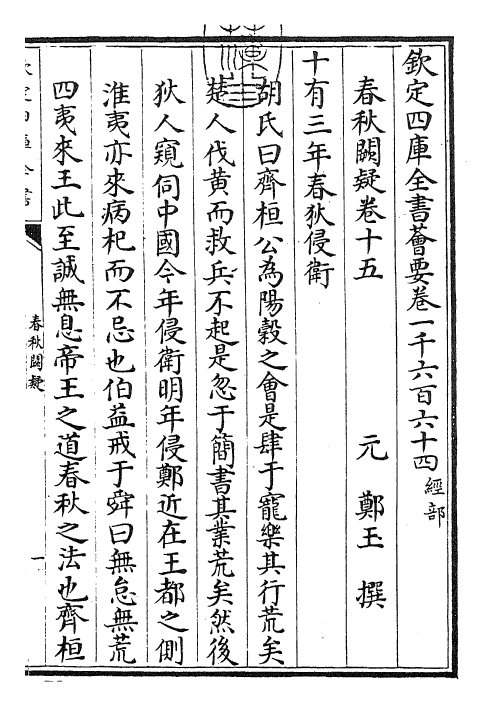 欽定四庫全書薈要卷一千六百六十四 經部
春秋闕疑卷十五 元 鄭玉 撰
十有三年春狄侵衛
胡氏曰齊桓公為陽穀之會是肆于寵樂其行荒矣
楚人伐黃而救兵不起是忽于簡書其業荒矣然後
狄人窺伺中國今年侵衛明年侵鄭近在王都之側
淮夷亦來病杞而不忌也伯益戒于舜曰無怠無荒
四夷來王此至誠無息帝王之道春秋之法也齊桓
春秋闕疑
一